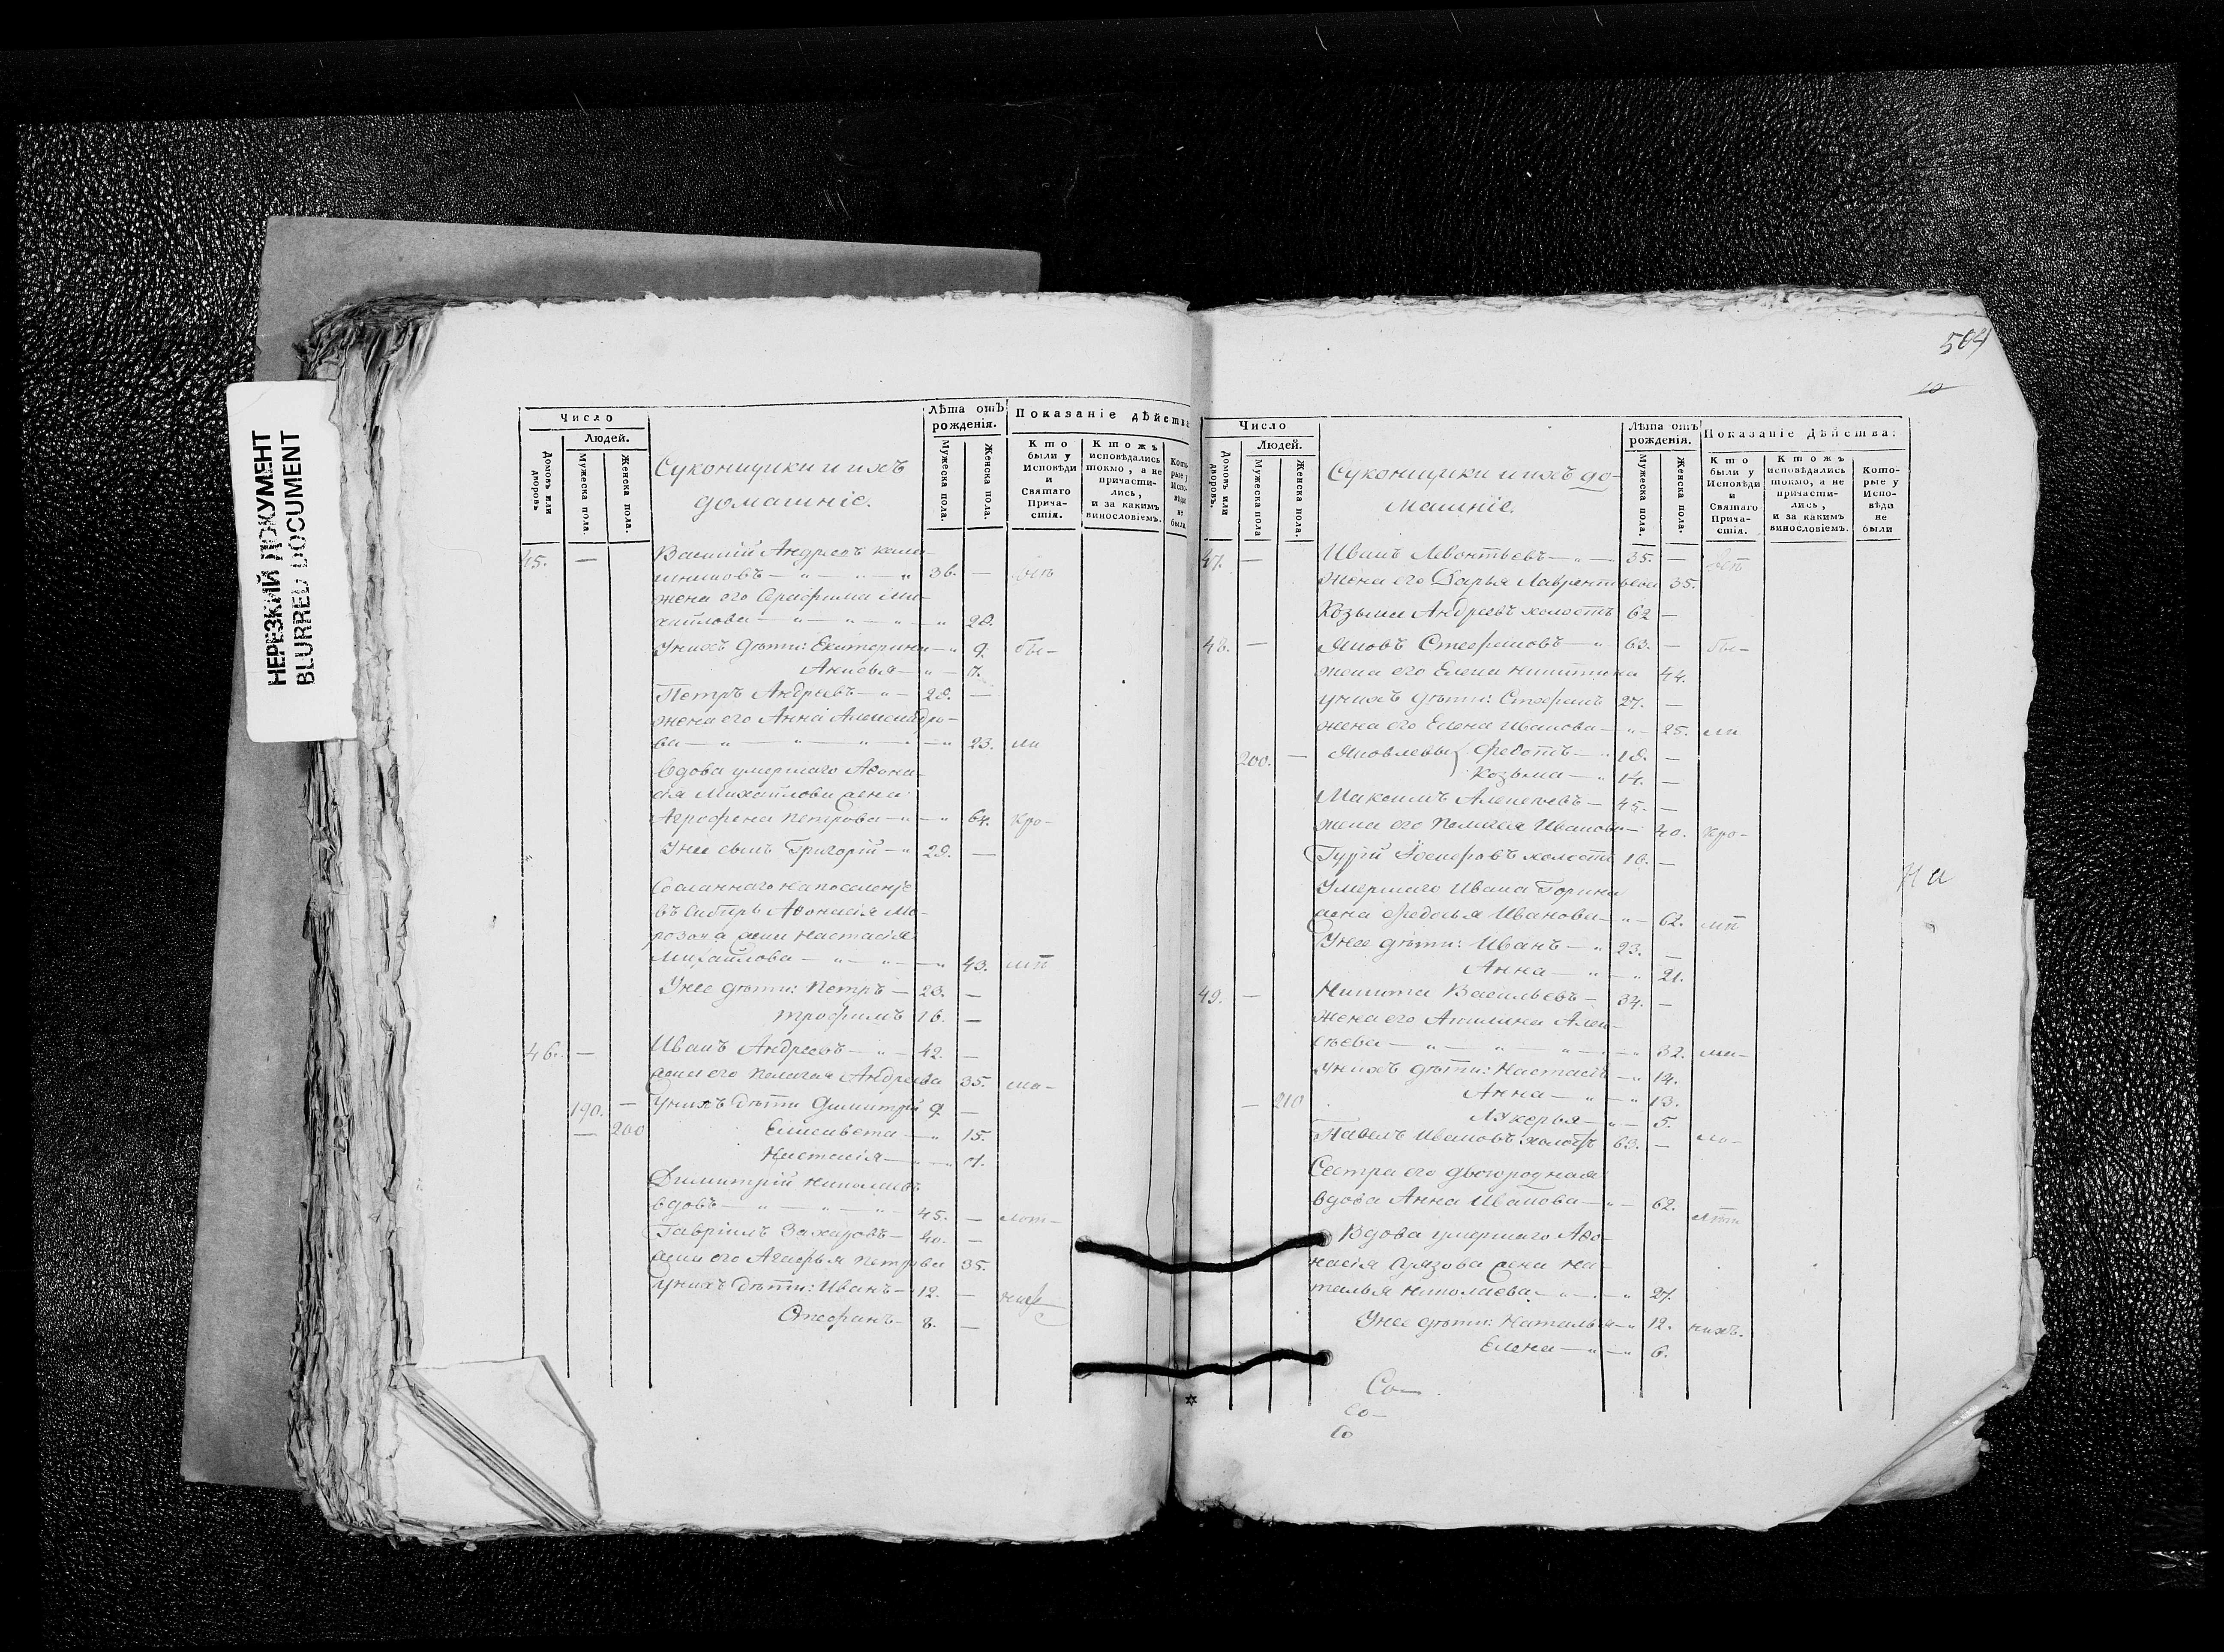 НЕРЕЗКИЙ ДОКУМЕНТ
BLURRED DOCUMENT
Число
Людей.
Домовъ или дворовъ
Мужеска пола.
Женска пола.
Суконщики и ихъ
домашніе.
Лѣта отъ
рожденія.
Мужеска пола.
Женска пола.
Показаніе дѣйства
Кто
были у
Исповѣди
и
Святаго
Прича-
стія.
Ктожъ
исповѣдались
токмо, а не
причасти-
лись,
и за какимъ
винословіемъ.
Кото-
рые у
Испо-
вѣди
не
были
45. —
Василій Андреевъ
36. —
жена его Серафима Ми-
хайлова 28.
Унихъ дѣти: Екатерина 9. бы-
Анисья 7.
Петръ Андреевъ 28. —
жена его Анна Александро-
ва 23. ли
Вдова умершаго Афона-
сія Михайлова жена
Агрофена Петрова 64. кро-
Унее сынъ Григорій 29. —
Сосланнаго напоселеніе
въ Сибирь Афонасія Мо-
розова жена Настасія
Михайлова 43.
Унее дѣти: Петръ 23. —
Трофимъ 16. —
46. — Иванъ Андреевъ 42. —
жена его Пелагея Андреева 35.
190. — Унихъ дѣти Димитрій 9 —
— 200 Елисавета 15.
Настасія
Димитрій Николаевъ
вдовъ 45. —
Гавріилъ Захаровъ 40. —
жена его Агафья Петрова 35.
Унихъ дѣти: Иванъ 12. —
Стефанъ 8. —
504
Число
Людей.
Домовъ или дворовъ.
Мужеска пола
Женска пола.
Суконщики и ихъ до-
машніе.
Лѣта отъ
рожденія.
Мужеска пола.
Женска пола.
Показаніе Дѣйства:
Кто
были у
Исповѣди
и
Святаго
Прича-
стія.
Ктожъ
исповѣдались
токмо, а не
причасти-
лись,
и за какимъ
винословіемъ.
Кото-
рые у
Испо-
вѣди
не
были
47. — Иванъ Леонтьевъ 35. —
жена его Дарья Лаврентьева 35.
Козьма Андреевъ холостъ 62 —
48. — Яковъ Стефановъ 63. — бы-
жена его Елена Никитина 44.
унихъ дѣти: Стефанъ 27. —
жена его Елена Иванова 25. ли
200. — Яковлевы { Федотъ 18. —
Козьма 14. —
Максимъ Алексѣевъ 45. —
жена его Пелагея Иванова 40. кро-
Гурій холостъ 16. —
Умершаго Ивана Горина
жена Федосья Иванова 62.
Унее дѣти: Иванъ 23. —
Анна 21.
49. — Никита Васильевъ 34. —
жена его Акилина Алек-
сѣева 32.
Унихъ дѣти: Настасія 14.
— 210 Анна 13.
Лукерья 5.
Павелъ Ивановъ холостъ 63. —
Сестра его двоюродная
вдова Анна Иванова 62.
Вдова умершаго Афо-
насія жена На-
талья Николаева 27.
Унее дѣти: Наталья 12. нихъ.
Елена 6.
На
Со—
Со—
Со